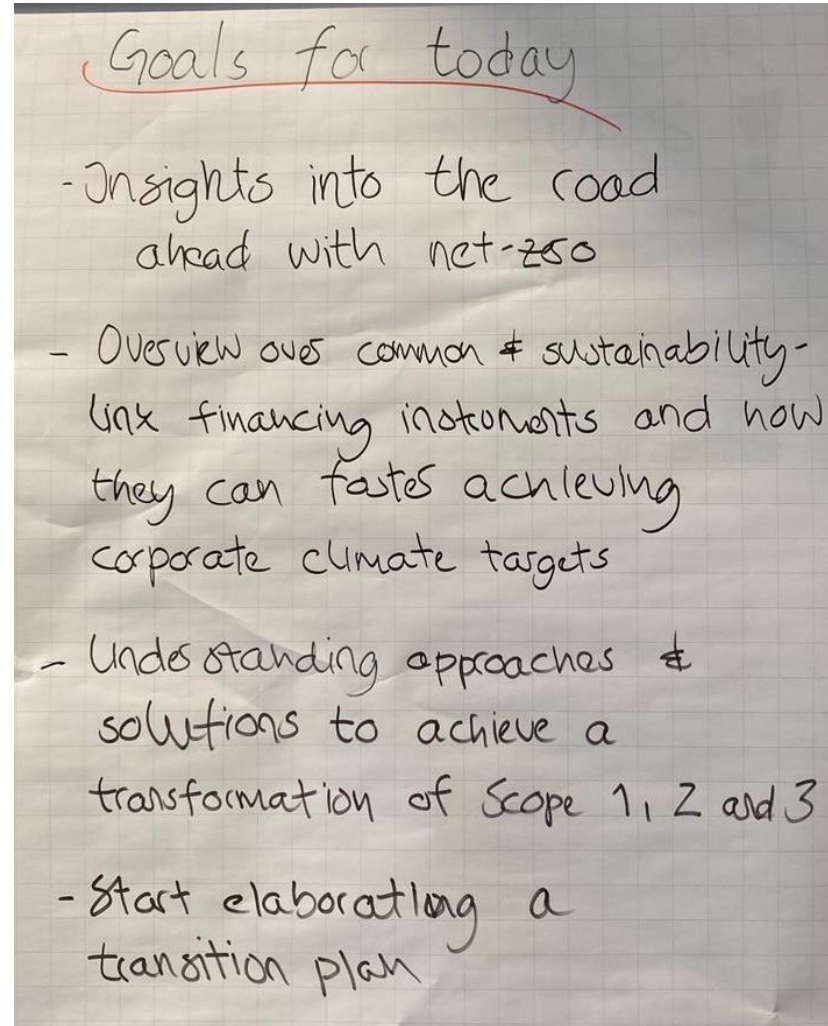 Goals for today
- Insights into the road
ahead with net-zero
- Overview over common & sustainability-
link financing instruments and how
they can foster achieving
corporate climate targets
- Understanding approaches &
solutions to achieve a
transformation of Scope 1, 2 and 3
- Start elaborating a
transition plan